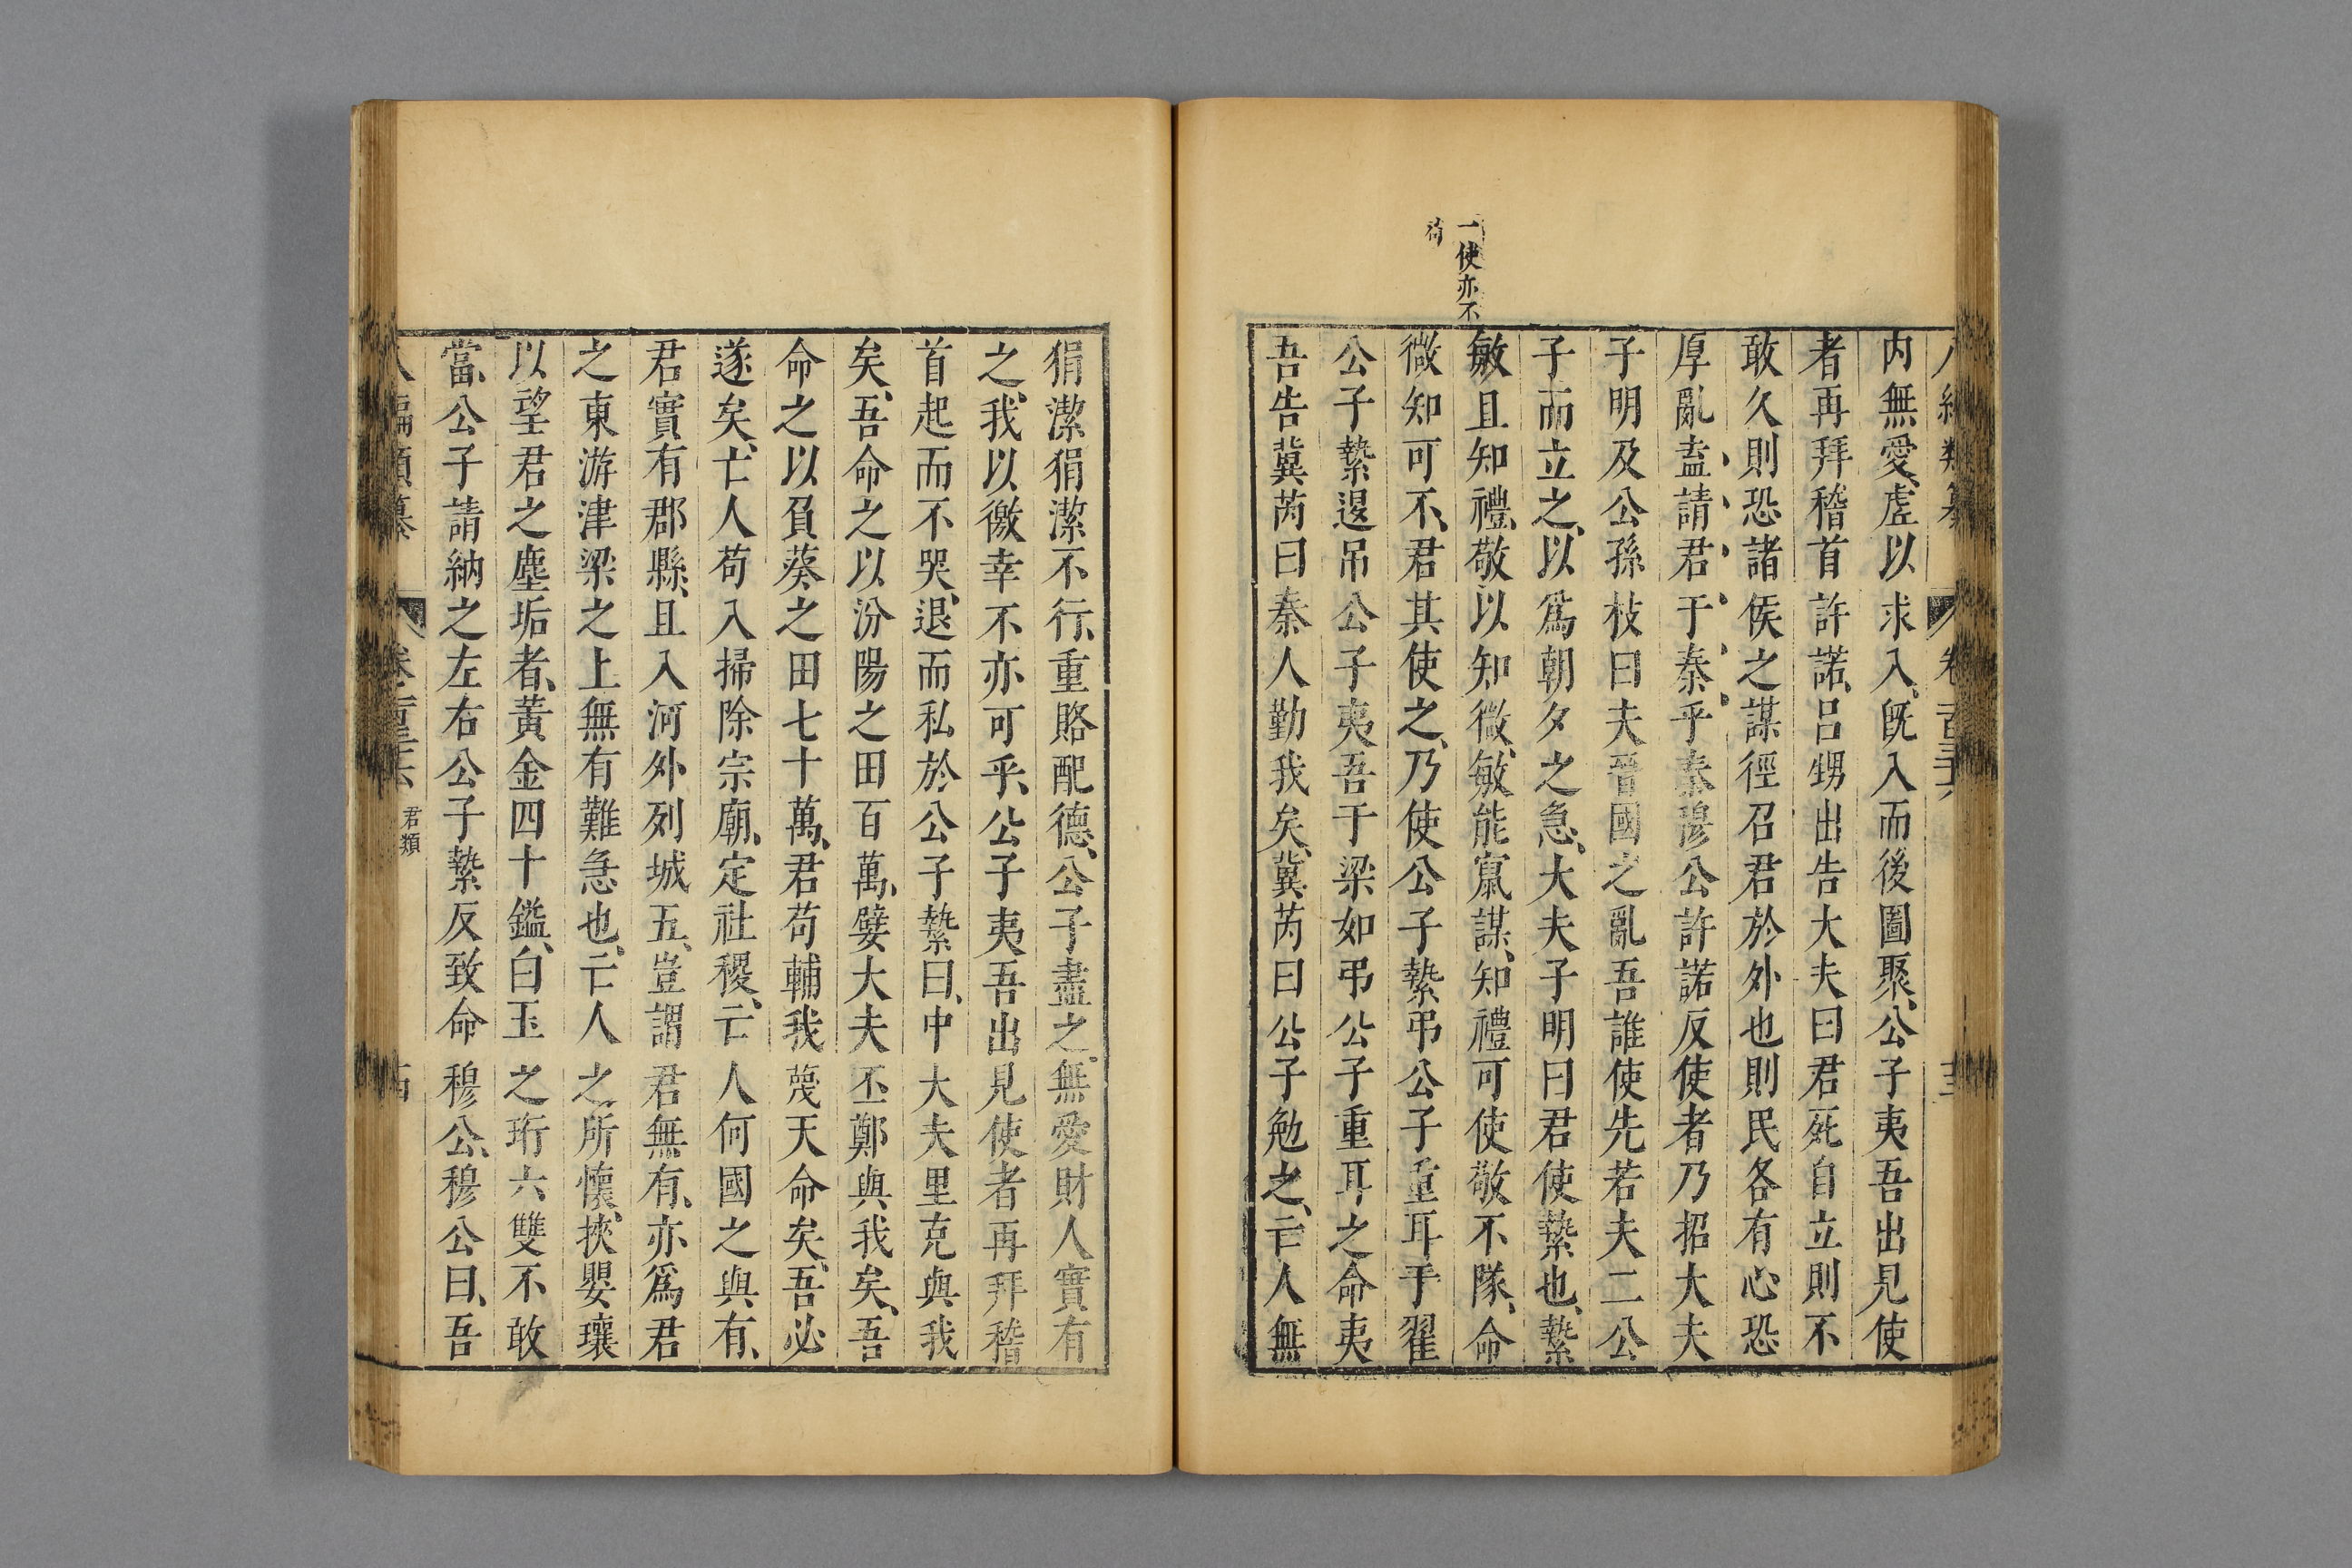 一使亦不
苟
内無愛虗以求入旣入而後圖聚公子夷吾出見使
者再拜稽首許諾呂甥出告大夫曰君死自立則不
敢久則恐諸侯之謀徑召君於外也則民各有心恐
厚亂盍請君于秦乎秦穆公許諾反使者乃招大夫
子明及公孫枝曰夫晉國之亂吾誰使先若夫二公
子而立之以爲朝夕之急大夫子明曰君使縶也縶
敏且知禮敬以知微敏能竄謀知禮可使敬不隊命
微知可不君其使之乃使公子縶弔公子重耳于翟
公子縶退吊公子夷吾于梁如弔公子重耳之命夷
吾告冀芮曰秦人勤我矣冀芮曰公子勉之亡人無
狷潔狷潔不行重賂配德公子盡之無愛財人實有
之我以徼幸不亦可乎公子夷吾出見使者再拜稽
首起而不哭退而私於公子縶曰中大夫里克與我
矣吾命之以汾陽之田百萬嬖大夫丕鄭與我矣吾
命之以負葵之田七十萬君苟輔我蔑天命矣吾必
遂矣亡人苟入掃除宗廟定社稷亡人何國之與有
君實有郡縣且入河外列城五豈謂君無有亦爲君
之東游津梁之上無有難急也亡人之所懷挾嬰瓖
以望君之塵垢者黃金四十鎰白玉之珩六雙不敢
當公子請納之左右公子縶反致命穆公穆公曰吾
君類